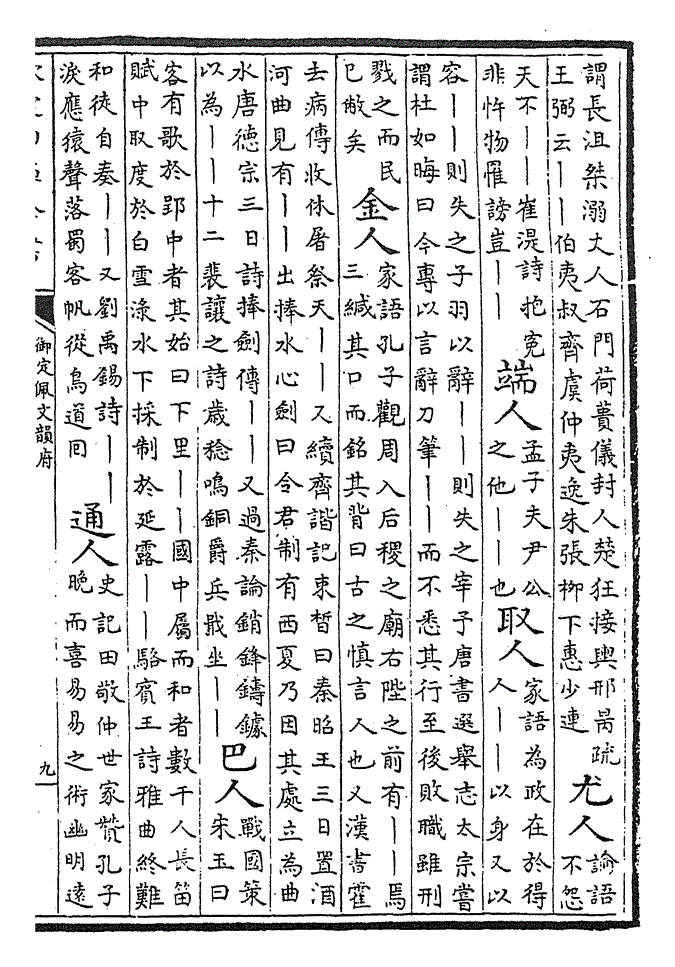 謂長沮桀溺丈人石門荷蕢儀封人楚狂接輿邢昺疏
王弼云——伯夷叔齊虞仲夷逸朱張柳下惠少連
尤人
論語
不怨
天不——崔湜詩抱寃
非忤物罹謗豈——
端人
孟子夫尹公
之他——也
取人
家語為政在於得
人——以身又以
容——則失之子羽以辭——則失之宰予唐書選舉志太宗嘗
謂杜如晦曰今專以言辭刀筆——而不悉其行至後敗職雖刑
戮之而民
已敝矣
金人
家語孔子觀周入后稷之廟右陛之前有——焉
三緘其口而銘其背曰古之慎言人也又漢書霍
去病傳收休屠祭天——又續齊諧記束皙曰秦昭王三日置酒
河曲見有——出捧水心劍曰令君制有西夏乃因其處立為曲
水唐德宗三日詩捧劍傳——又過秦論銷鋒鑄鐻
以為——十二裴讓之詩歲稔鳴銅爵兵戢坐——
巴人
戰國策
宋玉曰
客有歌於郢中者其始曰下里——國中屬而和者數千人長笛
賦中取度於白雪淥水下採制於延露——駱賓王詩雅曲終難
和徒自奏——又劉禹錫詩——
淚應猿聲落蜀客帆從鳥道回
通人
史記田敬仲世家贊孔子
晚而喜易易之術幽明遠
御定佩文韻府
九